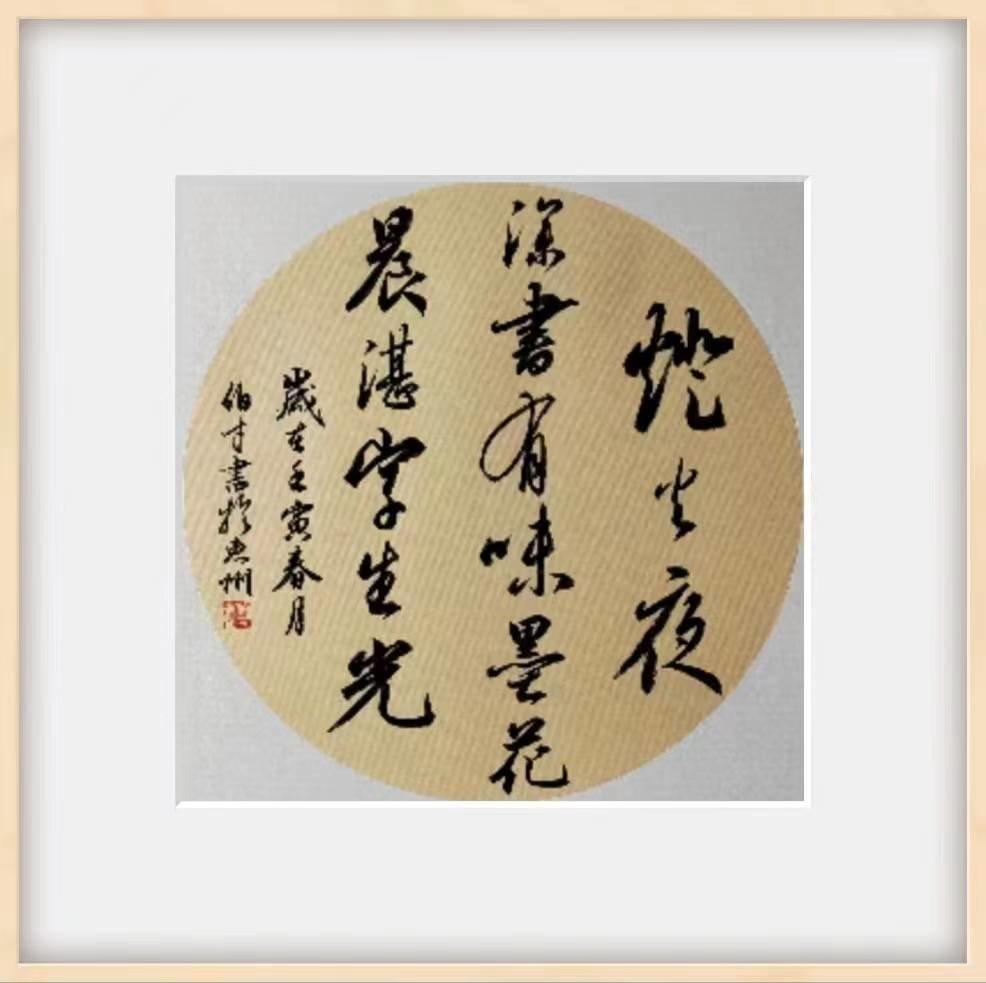 燈火夜
深書有味墨花
晨湛字生光
歲在壬寅春月
伯才書於惠州